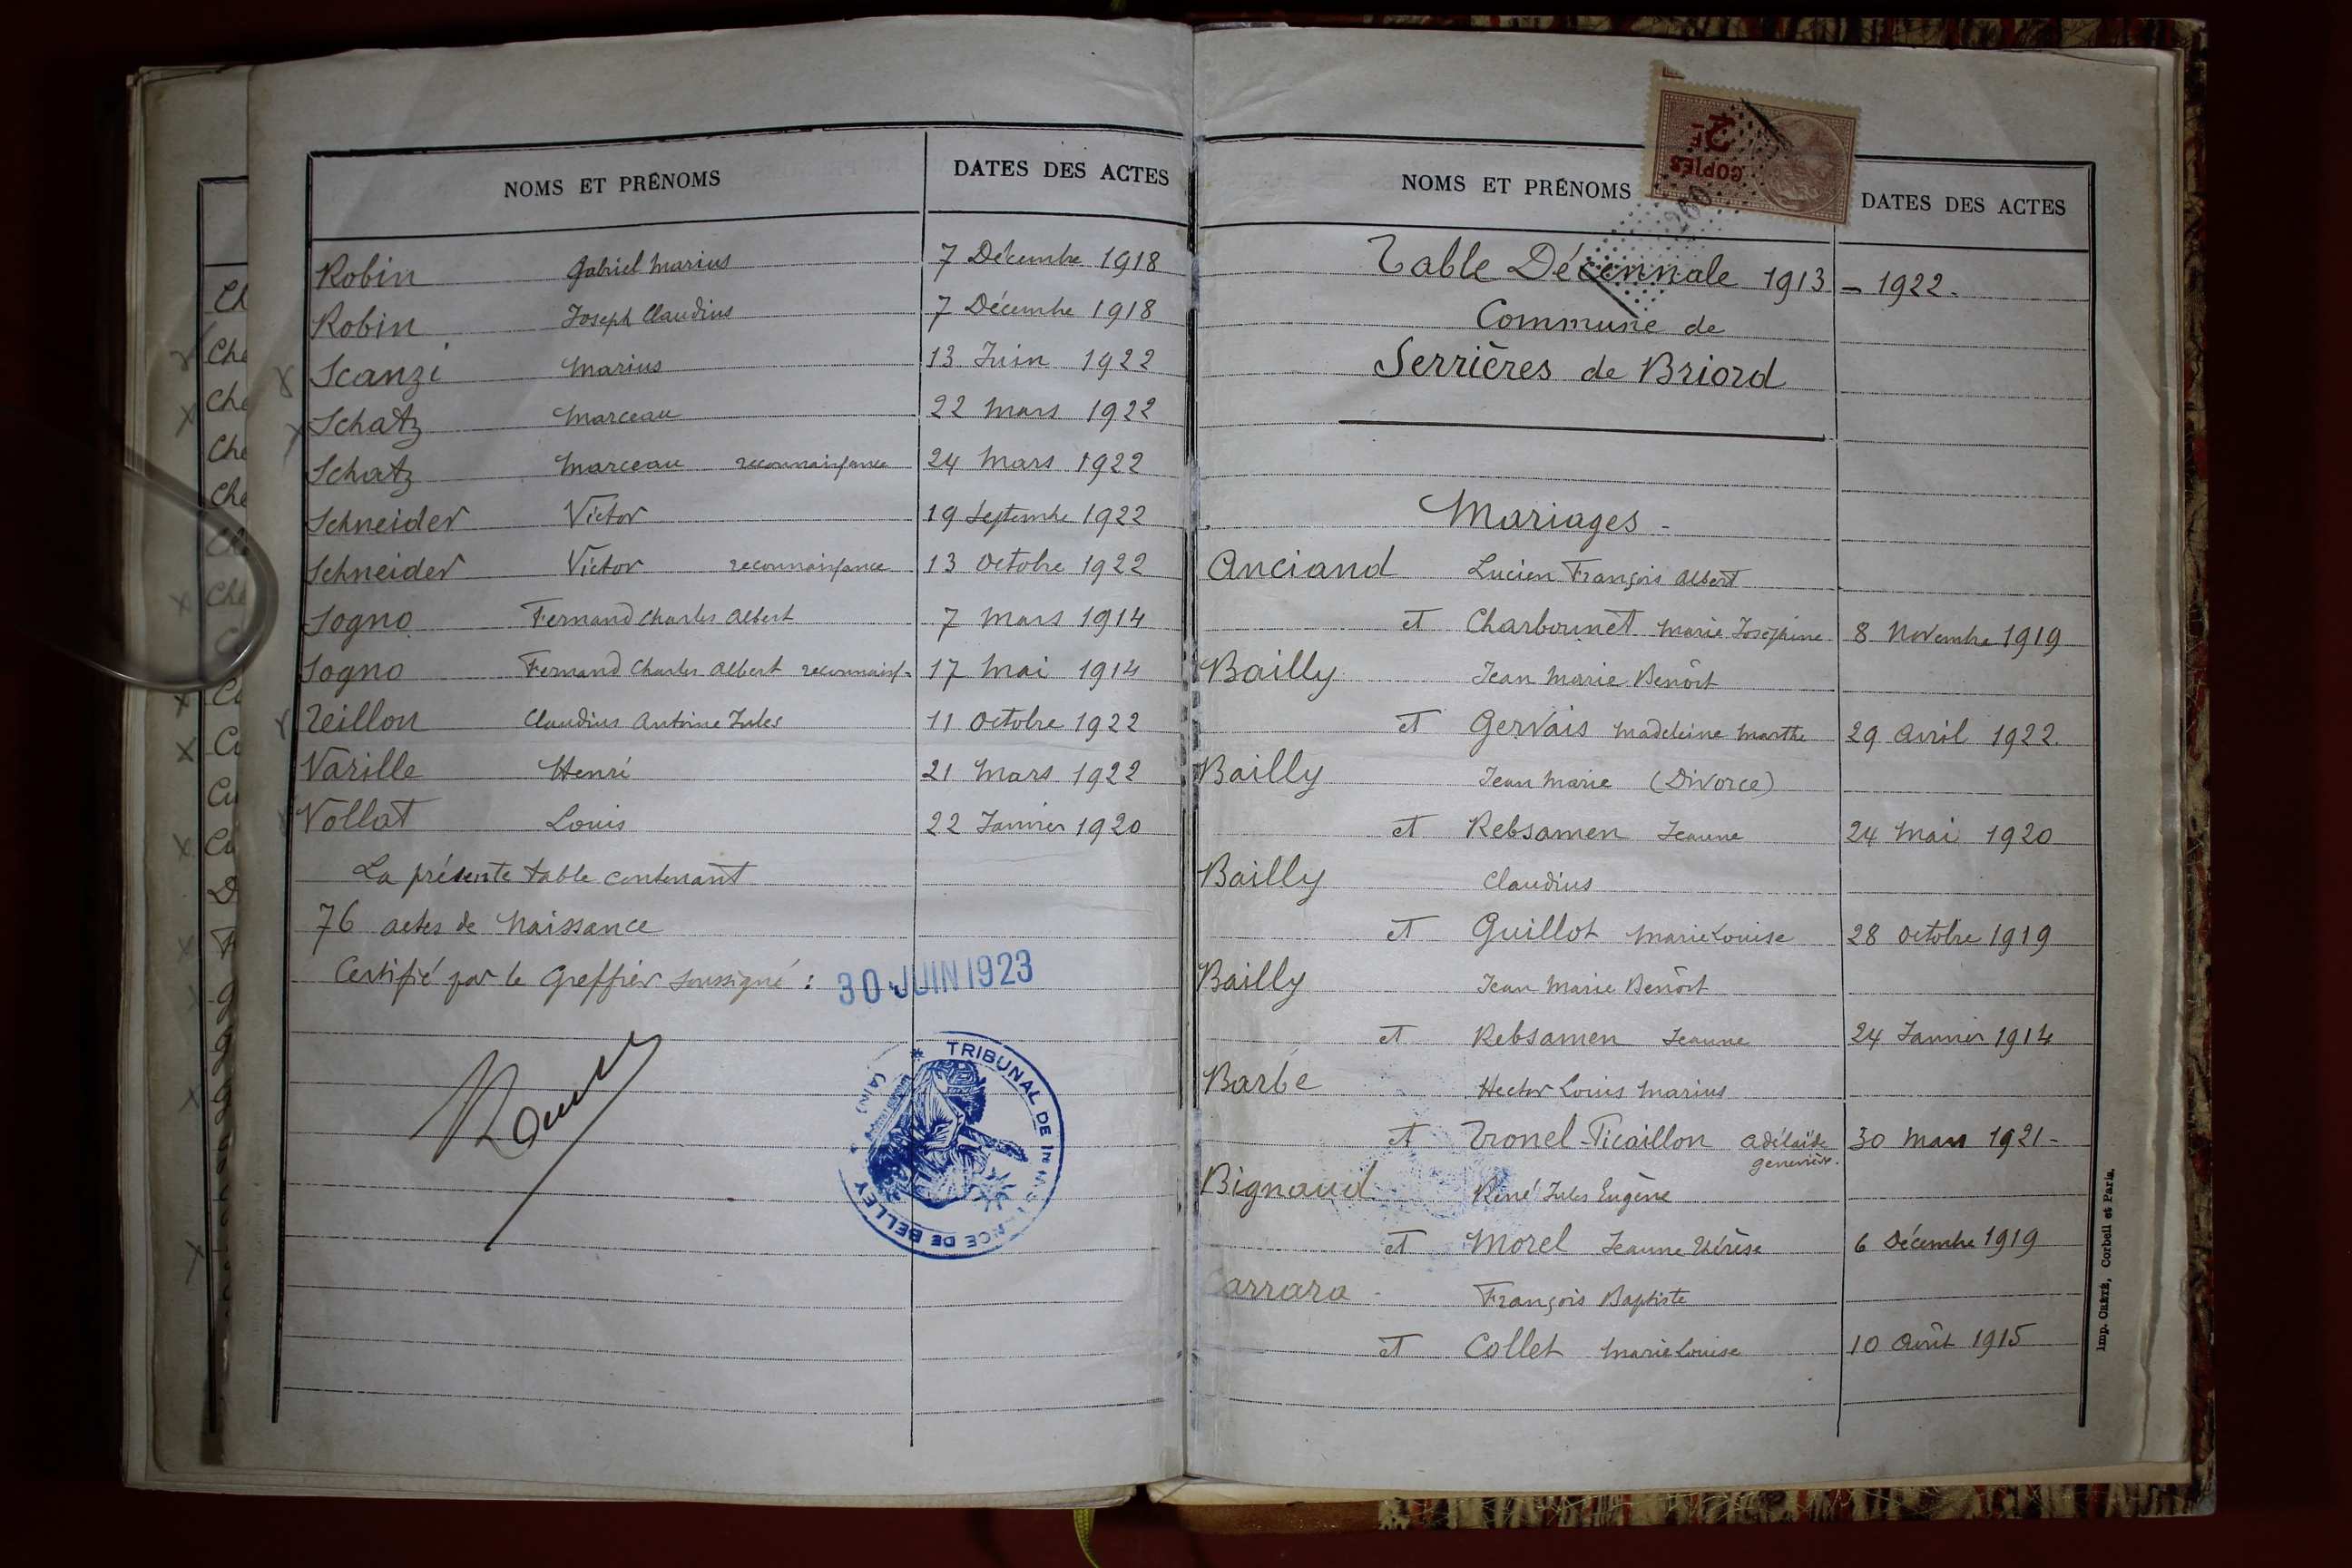 NOMS ET PRÉNOMS DATES DES ACTES
Robin Gabriel Marius 7 Décembre 1918
Robin Joseph Claudius 7 Décembre 1918
Scanzi Marius 13 Juin 1922
Schatz Marceau 22 Mars 1922
Schatz Marceau reconnaissance 24 Mars 1922
Schneider Victor 19 Septembre 1922
Schneider Victor reconnaissance 13 Octobre 1922
Sogno Fernand Charles Albert 7 Mars 1914
Sogno Fernand Charles Albert reconnaiss. 17 Mai 1914
Teillon Claudius Antoine Jules 11 Octobre 1922
Varille Henri 21 Mars 1922
Vollat Louis 22 Janvier 1920
La présente table contenant
76 actes de Naissance
Certifié par le Greffier soussigné :
30 JUIN 1923
TRIBUNAL DE 1re INSTANCE DE BELLEY
(AIN)
NOMS ET PRÉNOMS DATES DES ACTES
COPIES
2F
Table Décennale 1913 - 1922.
Commune de
Serrières de Briord
Mariages -
Anciand Lucien François Albert
et Charbonnet Marie Joséphine 8 Novembre 1919
Bailly Jean Marie Benôit
et Gervais Madeleine Marthe 29 Avril 1922.
Bailly Jean Marie (Divorce)
et Rebsamen Jeanne 24 Mai 1920
Bailly Claudius
et Guillot Marie Louise 28 Octobre 1919
Bailly Jean Marie Benôit
et Rebsamen Jeanne 24 Janvier 1914
Barbé Hector Louis Marius
et Tronel-Picaillon Adélaïde 30 Mars 1921 -
Geneviève.
Bignaud René Jules Eugène
et Morel Jeanne Thérèse 6 Décembre 1919
Carrara François Baptiste
et Collet Marie Louise 10 Août 1915
Imp. CRÉTÉ, Corbeil et Paris.